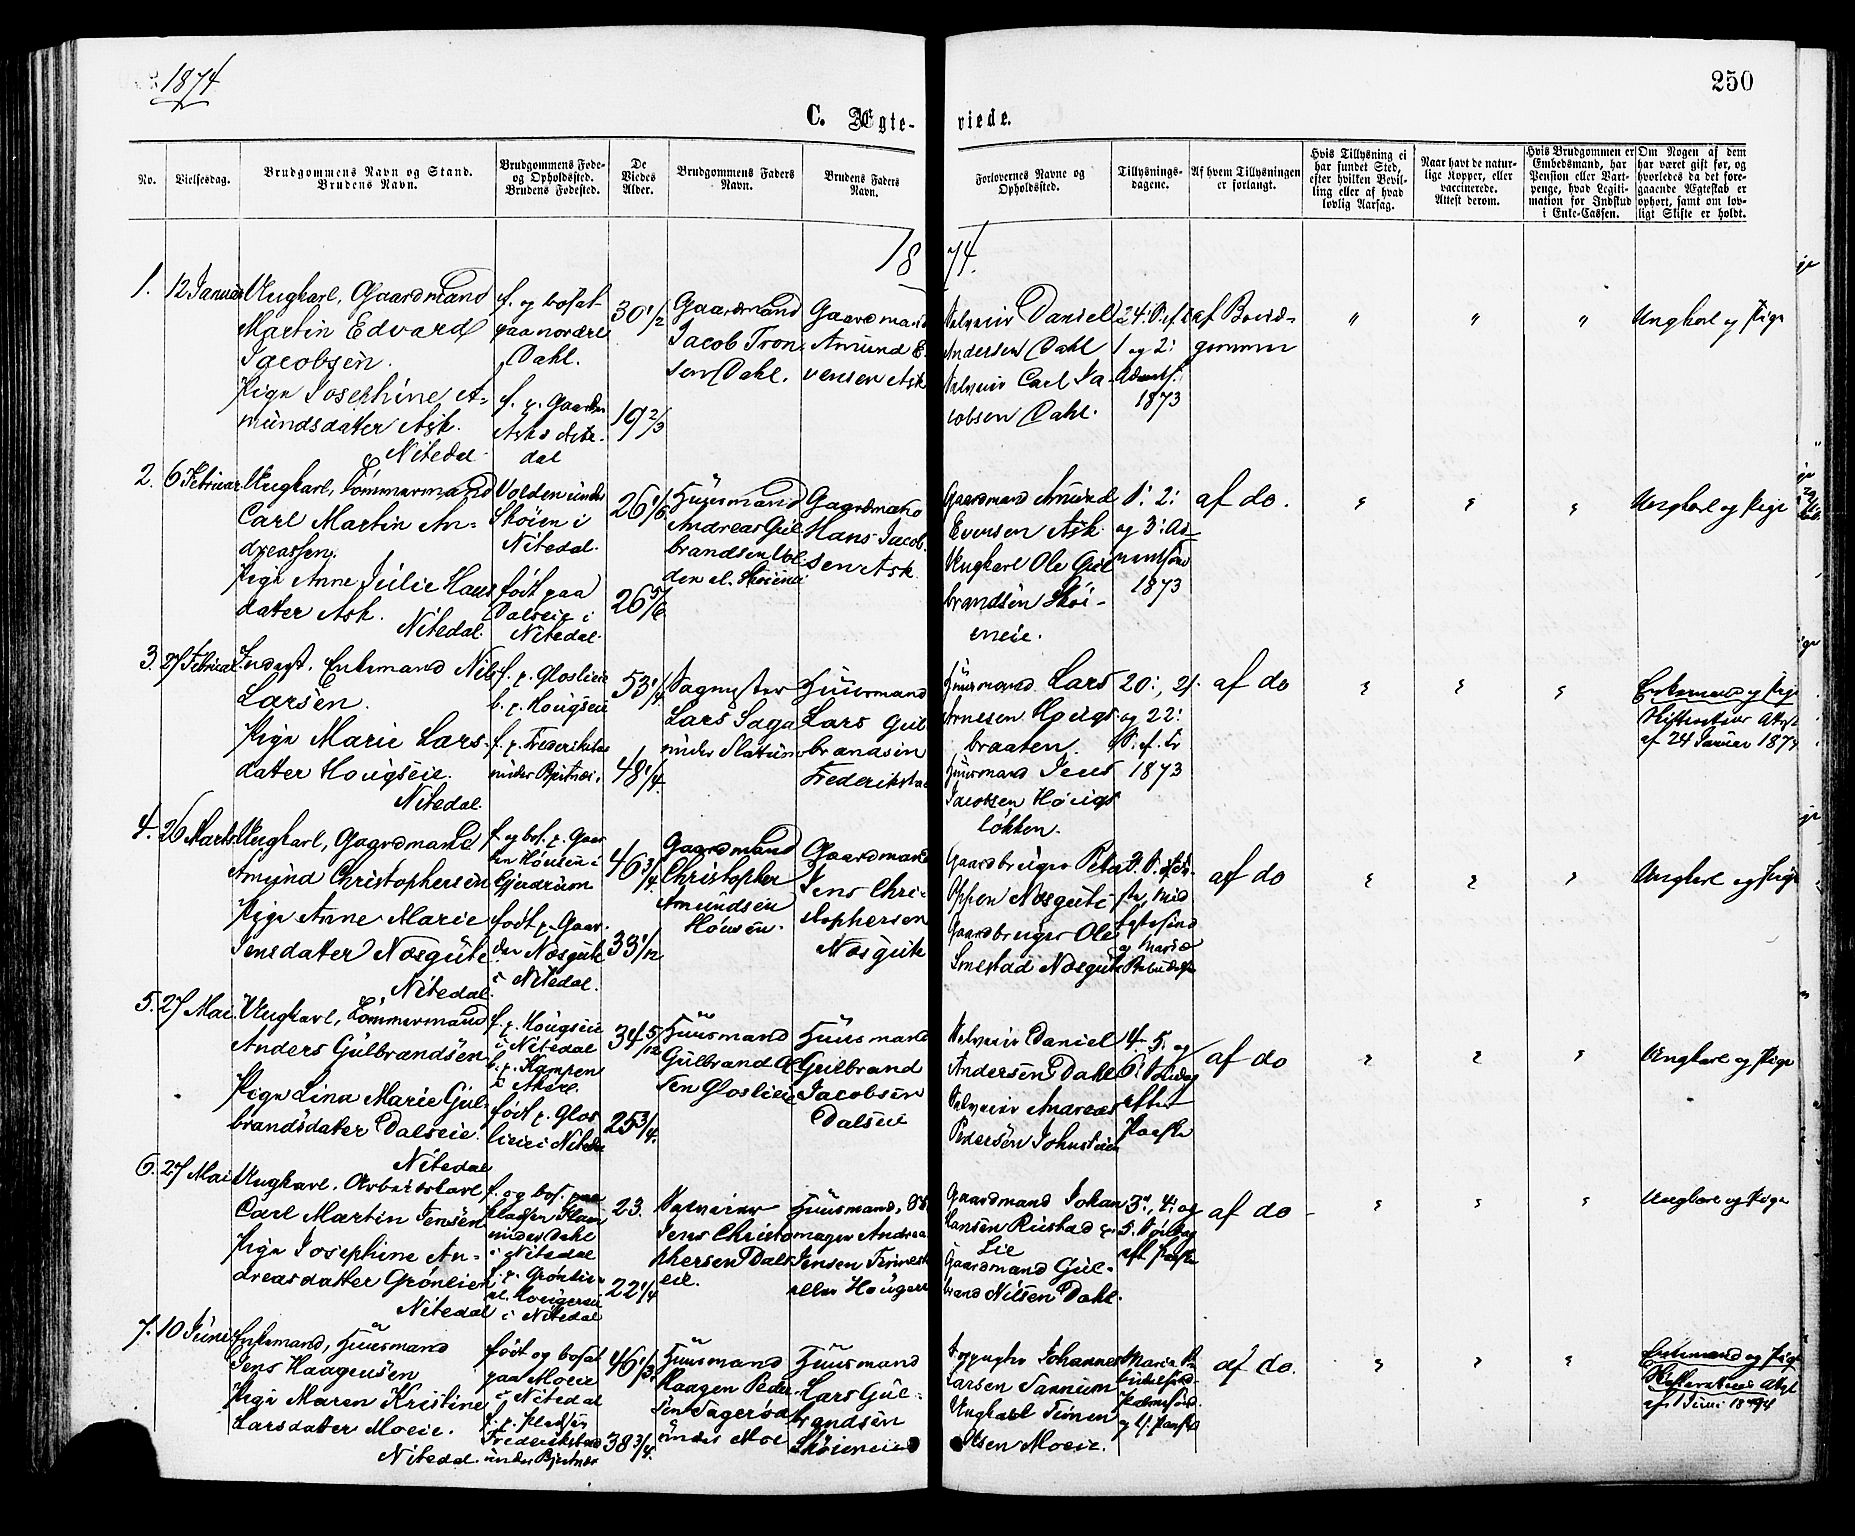 1874
250
C. Ægte-
viede.
No.
Vielsesdag.
Brudgommens Navn og Stand.
Brudens Navn.
Brudgommens Føde-
og Opholdssted.
Brudens Fødested.
De
Viedes
Alder.
Brudgommens Faders
Navn.
Brudens Faders
Navn.
Forlovernes Navne og
Opholdssted.
Tillysnings-
dagene.
Af hvem Tillysningen
er forlangt.
Hvis Tillysning ei
har fundet Sted,
efter hvilken Bevil-
ling eller af hvad
lovlig Aarsag.
Naar havt de natur-
lige Kopper, eller
vaccinerede.
Attest derom.
Hvis Brudgommen er
Embedsmand, har
Pension eller Vart-
penge, hvad Legiti-
mation for Indskud
i Enke-Cassen.
Om Nogen af dem
har været gift før, og
hvorledes da det fore-
gaaende Ægteskab er
ophørt, samt om lov-
ligt Skifte er holdt.
1874.
1.
12 Januar
Ungkarl, Gaardmand
Martin Edvard
Jacobsen.
Pige Josephine A-
mundsdatter Ask.
Nitedal
f. og bosat
paa nordre
Dahl.
f. p. Gaarden
Ask
dal
30 1/2
19 2/3
Gaardmand
Jacob Tron
sen Dahl.
Gaardmand
Amund E-
vensen Ask
Selveier Daniel
Andersen Dahl
Selveier Carl Ja-
cobsen Dahl.
24. S. ef. Tr.
1 og 2.
Adventsf.
1873
af Brud-
gommen
" " "
Ungkarl og Pige
2.
6 Februar
Ungkarl, Tømmermand
Carl Martin An-
dreassen.
Pige Anne Julie Hans
datter Ask.
Nitedal.
Volden under
Skøien i
Nitedal.
født paa
Dalseie i
Nitedal.
26 1/6
26 5/6
Huusmand
Andreas Gul
brandsen Vol
den
Gaardmand
Hans Jacob-
sen Ask
Gaardmand Amund
Evensen Ask
Ungkarl Ole Gul
brandsen Skøi-
eneie.
1. 2.
og 3. Ad-
ventsønd
1873
af do.
" " "
Ungkarl og Pige
3.
27 Februar
Inderst, Enkemand Nils
Larsen.
Pige Marie Lars-
datter Hougseie.
Nitedal.
f. p. Gloslieie
b. p. Hougseie
f. p. Frederikstad
under Bjertnæs.
53 1/4
48 1/4.
Sagmester
Lars Saga
under Slattum
Huusmand
Lars Gul
brandsen
Frederikstad
Huusmand Lars
Arnesen Hougs
braaten.
Huusmand Jens
Jacobsen Hougs
løkken.
20., 21.
og 22.
S. ef. Tr
1873
af do
" " "
Enkemand og Pige
Skifteretten Attest
af 24 Januar 1874
4.
26 Marts
Ungkarl, Gaardmand
Amund Christophersen
Pige Anne Marie
Jensdatter Næsgute
Nitedal.
f. og bos. p. Gaar
den Housen i
Gjerdrum
født p. Gaar-
den Næsgute
i Nitedal.
46 3/4.
33 1/12
Gaardmand
Christopher
Amundsen
Housen.
Gaardmand
Jens Chri-
stophersen
Næsgute
Gaardbruger Peter
Oppen Næsgute
Gaardbruger Ole
Smestad Næsgute
og Mariæ
af do
" " "
Ungkarl og Pige
5.
27 Mai.
Ungkarl, Tømmermand
Anders Gulbrandsen
Pige Lina Marie Gul-
brandsdatter Dalseie.
Nitedal
f. p. Hougseie
i Nitedal
b. p. Kampen
i Aker.
født p. Glos
lieie i Nitedal
34 5/12
25 3/4.
Huusmand
Gulbrand Ol
sen Gloslieie
Huusmand
Gulbrand
Jacobsen
Dalseie
Selveier Daniel
Andersen Dahl
Selveier Andreas
Pedersen Johnsteien
4. 5. og
6. Søndag
efter
Paaske
af do
" " "
Ungkarl og Pige
6.
27 Mai
Ungkarl. Arbeidskarl
Carl Martin Jensen
Pige Josephine An-
dreasdatter Grønlien
Nitedal
f. og bos. paa
Pladsen
under Dahl
i Nitedal
f. p. Grønlien
i Nitedal
23.
22 1/4
Selveier
Jens Christo
phersen Dals
eie.
Huusmand, Sko
mager Andreas
Jensen
eller
Gaardmand Johan
Hansen Rustad
Lie
Gaardmand Gul-
brand Nilsen Dahl.
3., 4. og
5. Søndag
eft. Paaske
af do
" " "
Ungkarl og Pige
7.
10 Juni
Enkemand, Huusmand
Jens Haagensen
Pige Maren Kristine
Larsdatter Moeie.
Nitedal.
født og bosat
paa Moeie
i Nitedal
f. p. Pladsen
Frederikstad
under Bjertnæs
46 1/3
38 3/4.
Huusmand
Haagen Peder-
sen Sagerud
under Moe
Huusmand
Lars Gul-
brandsen
Skøieneie
Johannes
Larsen Sannum
Ungkarl Simen
Olsen Moeie.
Maria Be
Palmesønd.
af do.
" " "
Enkemand og Pige
Skifterettens Attest
af 1 Juni 1874